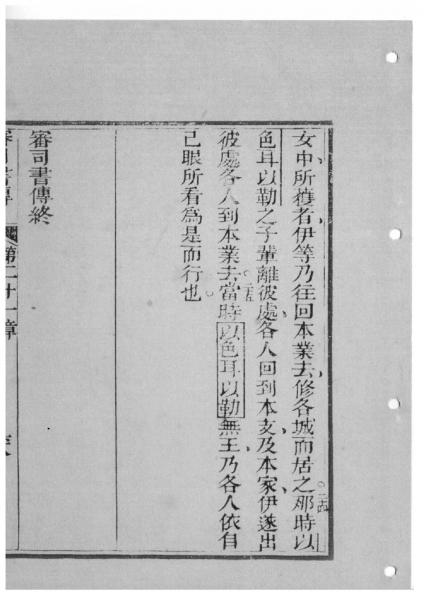 女中所獲者伊等乃往回本業去修各城而居之○二四那時以
色耳以勒之子輩離彼處各人回到本支及本家伊遂出
彼處各人到本業去○二五當時以色耳以勒無王乃各人依自
己眼所看為是而行也○
審司書傳終
審司書傳 第二十一章